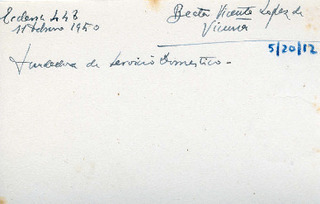 Ecclesia 448
11 Febrero 1950
Beata Vicenta Lopez de
Vicuña
5/20/12
Fundadora de Servicio Domestico -